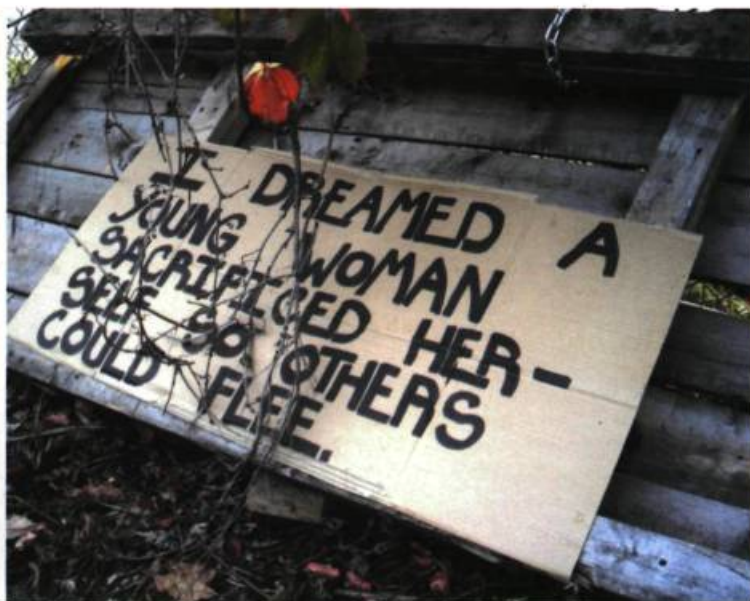 I DREAMED A
YOUNG WOMAN
SACRIFICED HER-
SELF SO OTHERS
COULD FLEE.